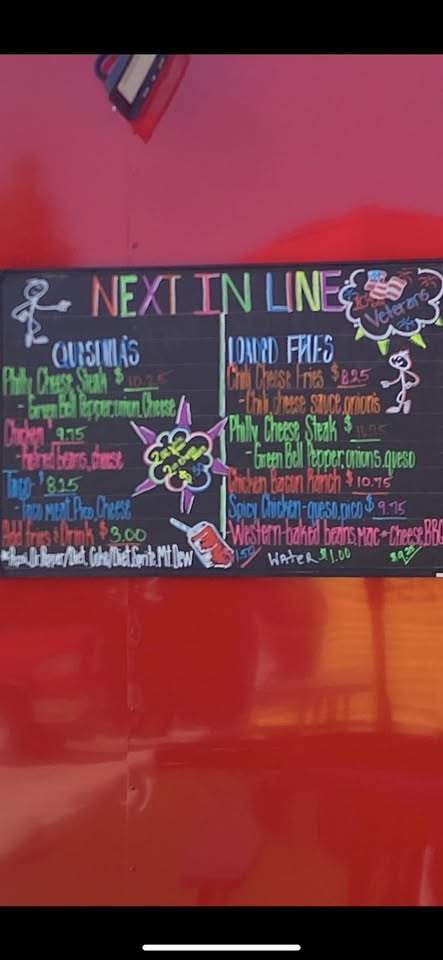 NEXT IN LINE
Veterans
QUESDILLAS
Philly Cheese Steak $10.25
- Green Bell Pepper, onion, Cheese
Chicken $9.75
- refried beans, cheese
Taco $8.25
- Taco meat, Pico, Cheese
Add fries & Drink $3.00
LOADED FRIES
Chili Cheese Fries $8.25
- Chili, cheese sauce, onions
Philly Cheese Steak $
- Green Bell Pepper, onions, queso
Chicken Bacon Ranch $10.75
Spicy Chicken - queso, pico $9.75
Western - baked beans, Mac n Cheese, BBQ
$9.25
Pepsi, Dr. Pepper/Diet, Coke/Diet, Sprite, Mt Dew
$1.50
Water $1.00